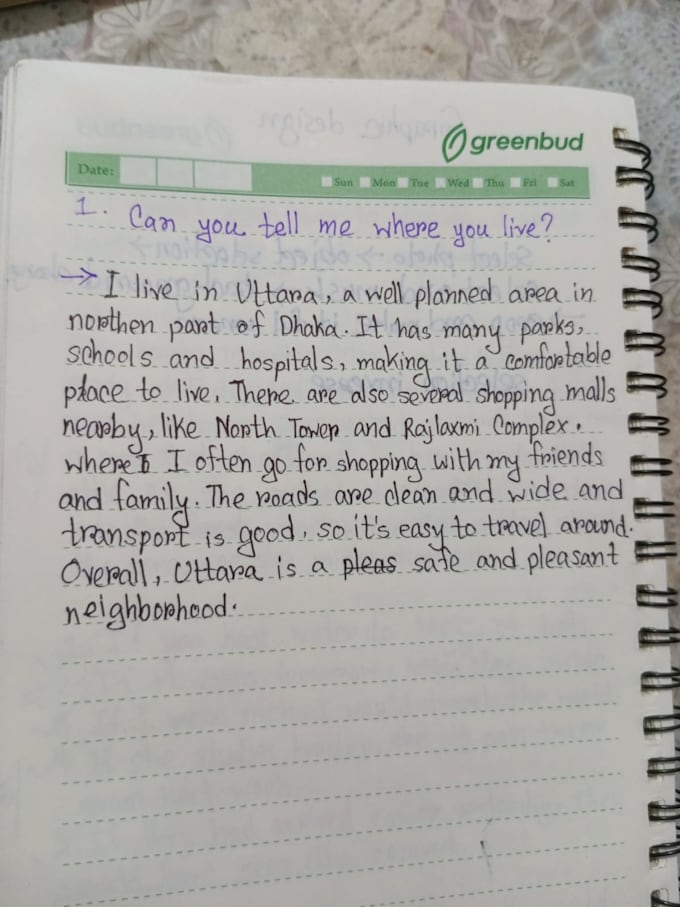 greenbud
Date:
Sun Mon Tue Wed Thu Fri Sat
1. Can you tell me where you live?
→ I live in Uttara, a well planned area in
northen part of Dhaka. It has many parks,
schools and hospitals, making it a comfortable
place to live. There are also several shopping malls
nearby, like North Tower and Rajlaxmi Complex.
where I often go for shopping with my friends
and family. The roads are clean and wide and
transport is good, so it's easy to travel around.
Overall, Uttara is a pleas safe and pleasant
neighborhood.